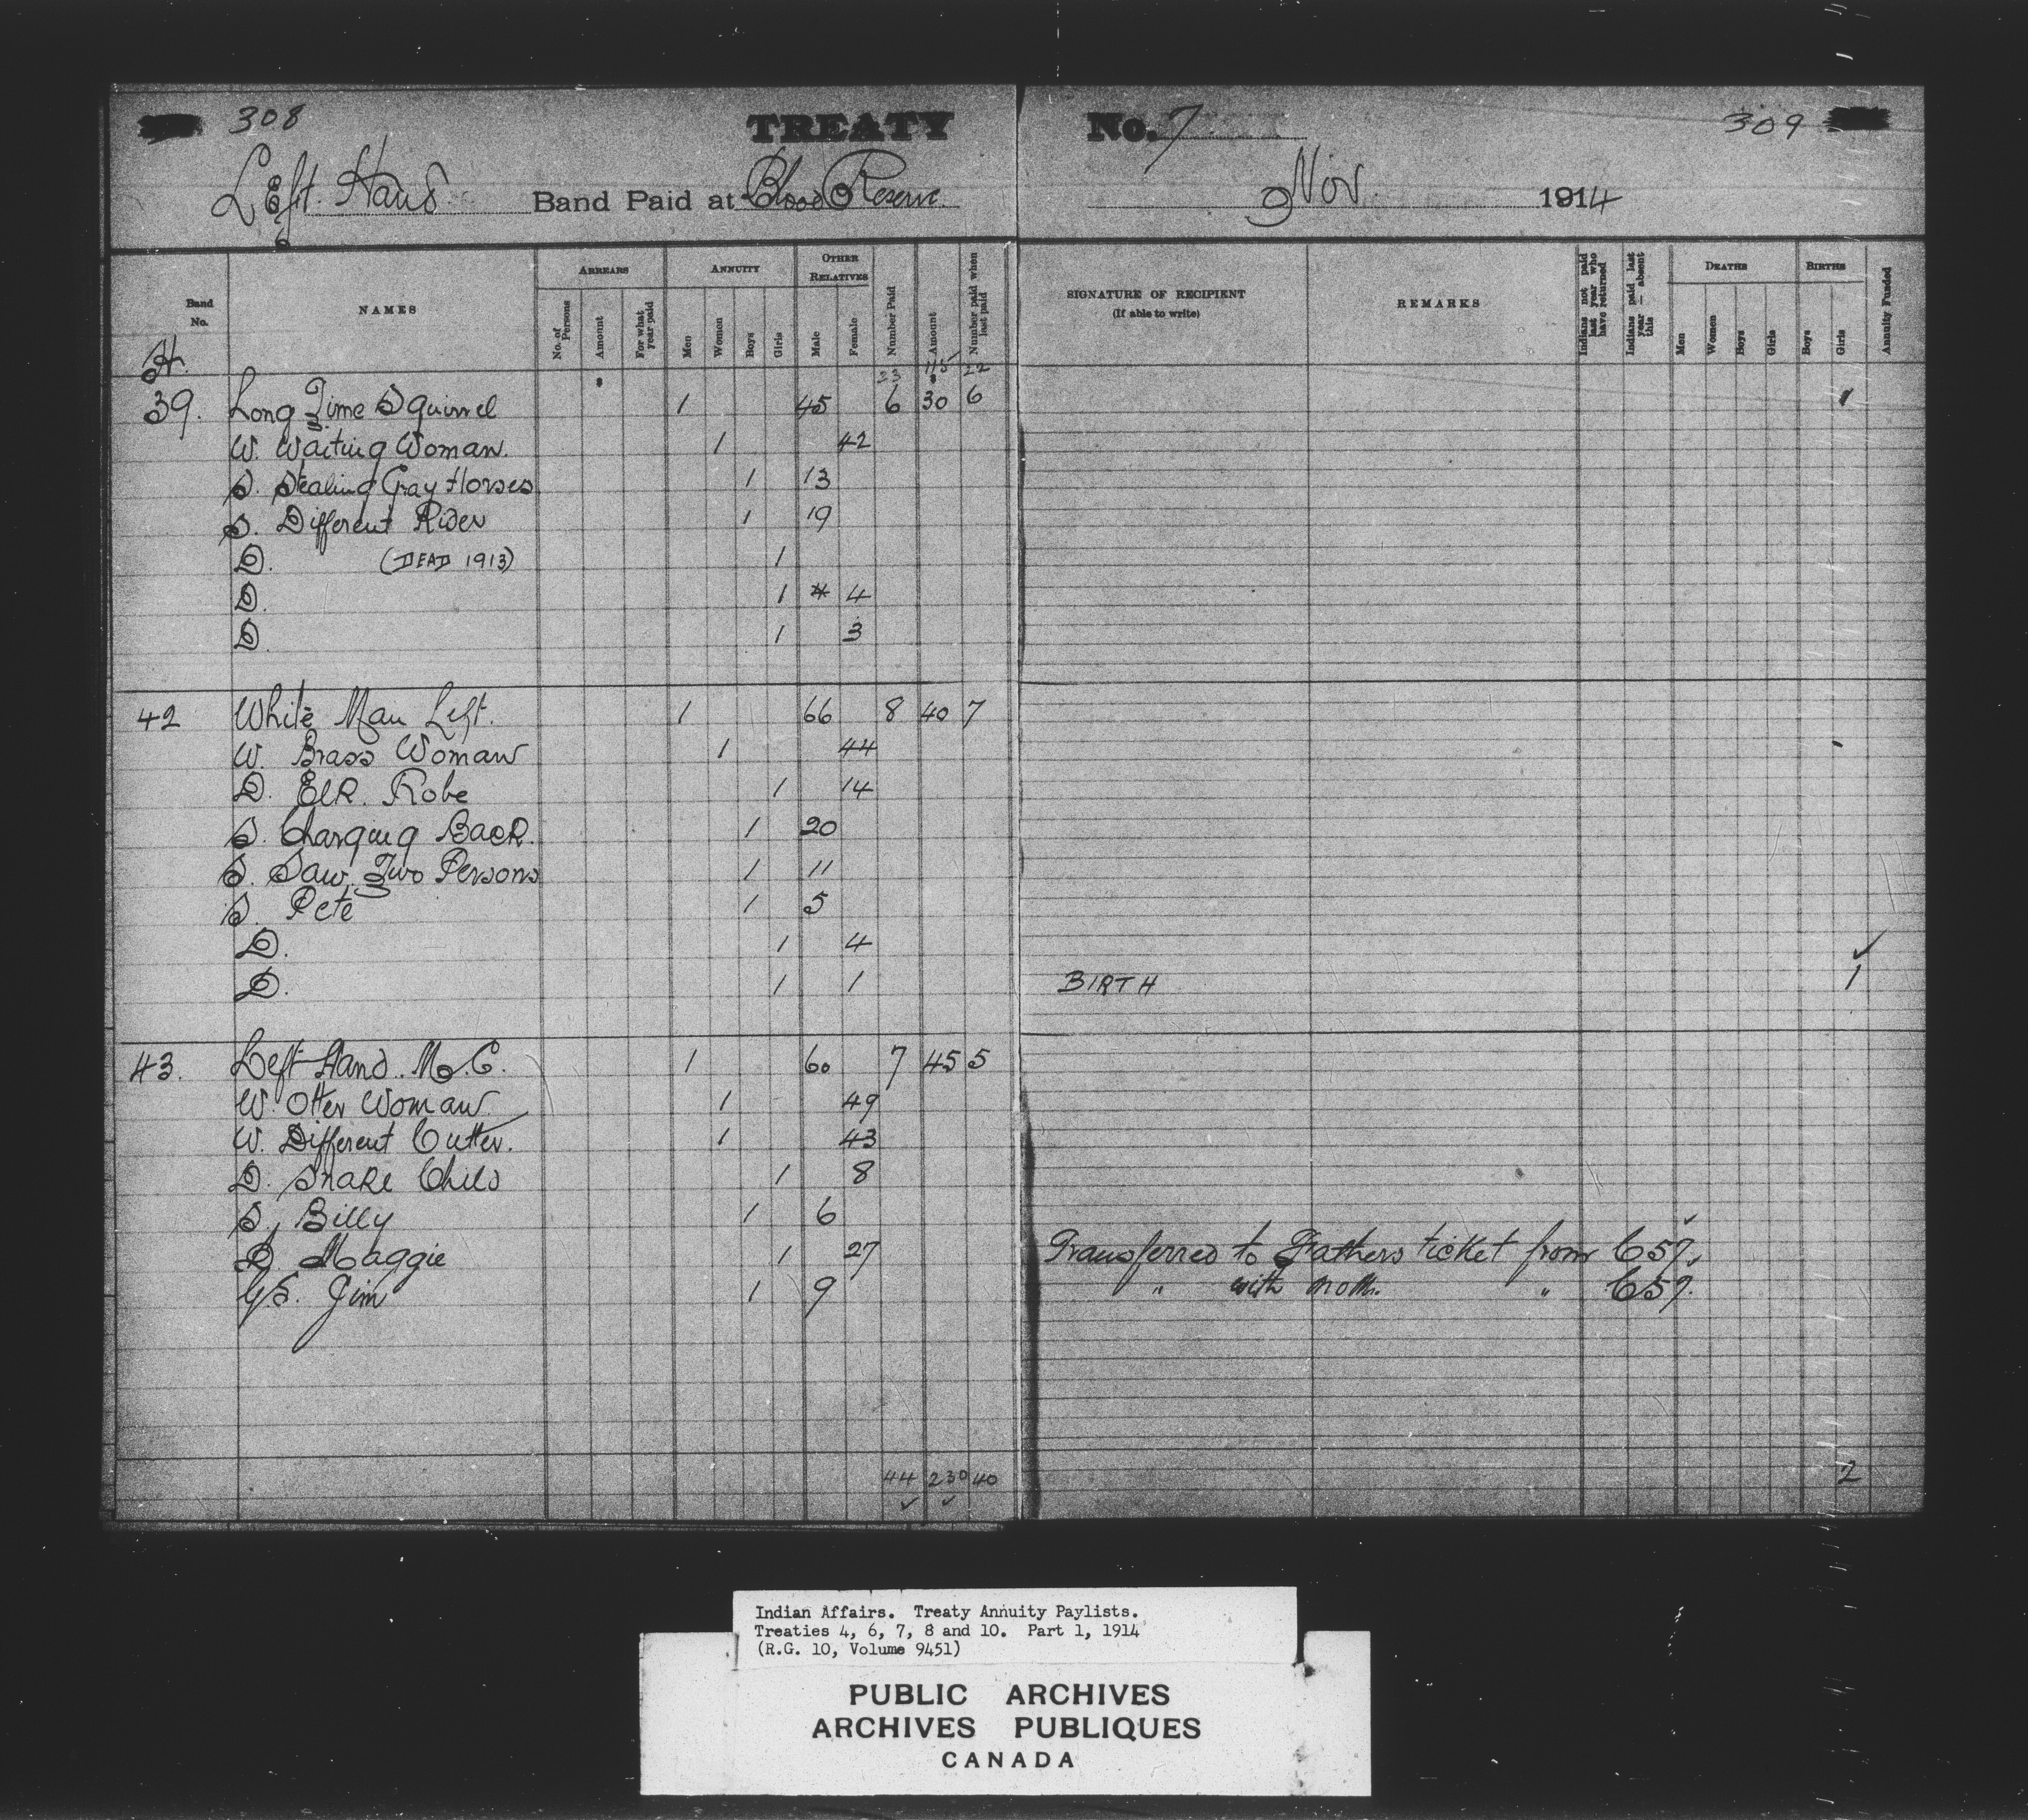 308 TREATY No. 7 309
Left Hand Band Paid at Blood Reserve Nov. 1914
Band No.
NAMES
ARREARS
No. of Persons
Amount
For what year paid
ANNUITY
Men
Women
Boys
Girls
OTHER RELATIVES
Male
Female
Number Paid
Amount
Number paid when last paid
SIGNATURE OF RECIPIENT
(If able to write)
REMARKS
Indians not paid last year who have returned
Indians paid last year — absent this
DEATHS
Men
Women
Boys
Girls
BIRTHS
Boys
Girls
Annuity Funded
23 115 22
39. Long Time Squirrel 1 45 6 30 6 1
W. Waiting Woman. 1 42
S. Stealing Gray Horses 1 13
S. Different Rider 1 19
D. (DEAD 1913) 1
D. 1 4
D. 1 3
42 White Man Left. 1 66 8 40 7
W. Brass Woman 1 44
D. Elk Robe 1 14
S. Charging Back. 1 20
S. Saw Two Persons 1 11
S. Pete 1 5
D. 1 4
D. 1 1 BIRTH 1
43. Left Hand. M.C. 1 60 7 45 5
W. Otter Woman 1 49
W. Different Cutter. 1 43
D. Snake Child 1 8
S. Billy 1 6
D. Maggie 1 27 Transferred to Fathers ticket from C57.
G.S. Jim 1 9 " with moth. " C57.
44 230 40 2
Indian Affairs. Treaty Annuity Paylists.
Treaties 4, 6, 7, 8 and 10. Part 1, 1914
(R.G. 10, Volume 9451)
PUBLIC ARCHIVES
ARCHIVES PUBLIQUES
CANADA